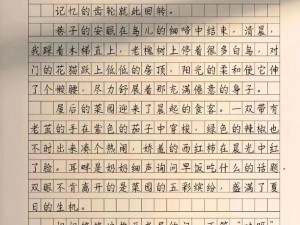 记忆的齿轮就此回转。
巷子的安眠在鸟儿的细啼中结束，清晨，
我踩着木梯直上，老槐树上停着很多白鸟，对
门的花猫跃上低低的房顶，阳光的柔和使它伸
了个懒腰，尽力舒展着那充满倦意的身子。
屋后的菜园迎来了晨起的食客。一双带有
老茧的手在紫色的茄子中穿梭，绿色的辣椒也
不时出来凑个热闹，娇羞的西红柿在晨光中红
了脸。耳畔是奶奶细声询问早饭吃什么的话题，
双眼不肯离开的是菜园的五彩缤纷，盛满了夏
日的生机。